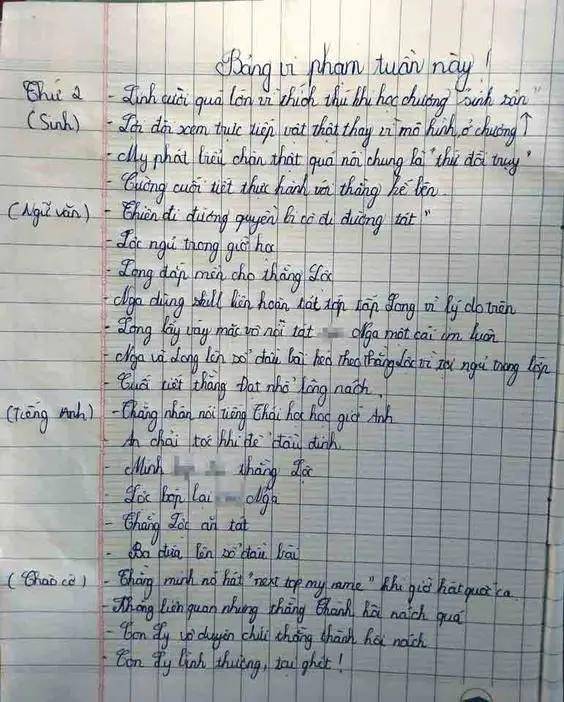 Bảng vi phạm tuần này!
Thứ 2 - Linh cười quá lớn vì thích thú khi học chương "sinh sản"
(Sinh) - Lời đòi xem trực tiếp vật thật thay vì mô hình, ở chương ↑
- My phát biểu chân thật quá nói chung là "thứ đồi trụy"
- Cường cuối tiết thực hành với thằng kế bên.
(Ngữ văn) - Thiên đi đường quyền bị cô đi đường tát"
- Lộc ngủ trong giờ học
- Long đắp mền cho thằng Lộc
- Nga dùng skill liên hoàn tát tới tấp Long vì lý do trên
- Long lấy váy mặc vô nói tát Nga một cái im luôn
- Nga và Long lên sổ đầu bài kéo theo thằng Lộc vì tội ngủ trong lớp
- Cuối tiết thằng Đạt nhổ lông nách.
(Tiếng Anh) - Thằng nhân nói tiếng Thái học học giờ Anh
- An chải tóc khi để đầu đinh
- Minh thằng Lộc
- Lộc bóp lại Nga
- Thằng Lộc ăn tát
- Ba đứa lên sổ đầu bài
(Chào cờ) - Thằng minh nó hát "next top my name" khi giờ hát quốc ca
- Không liên quan nhưng thằng Thành hôi nách quá
- Con Ly vô duyên chửi thằng thành hôi nách
- Con Ly bình thường, tai ghét!